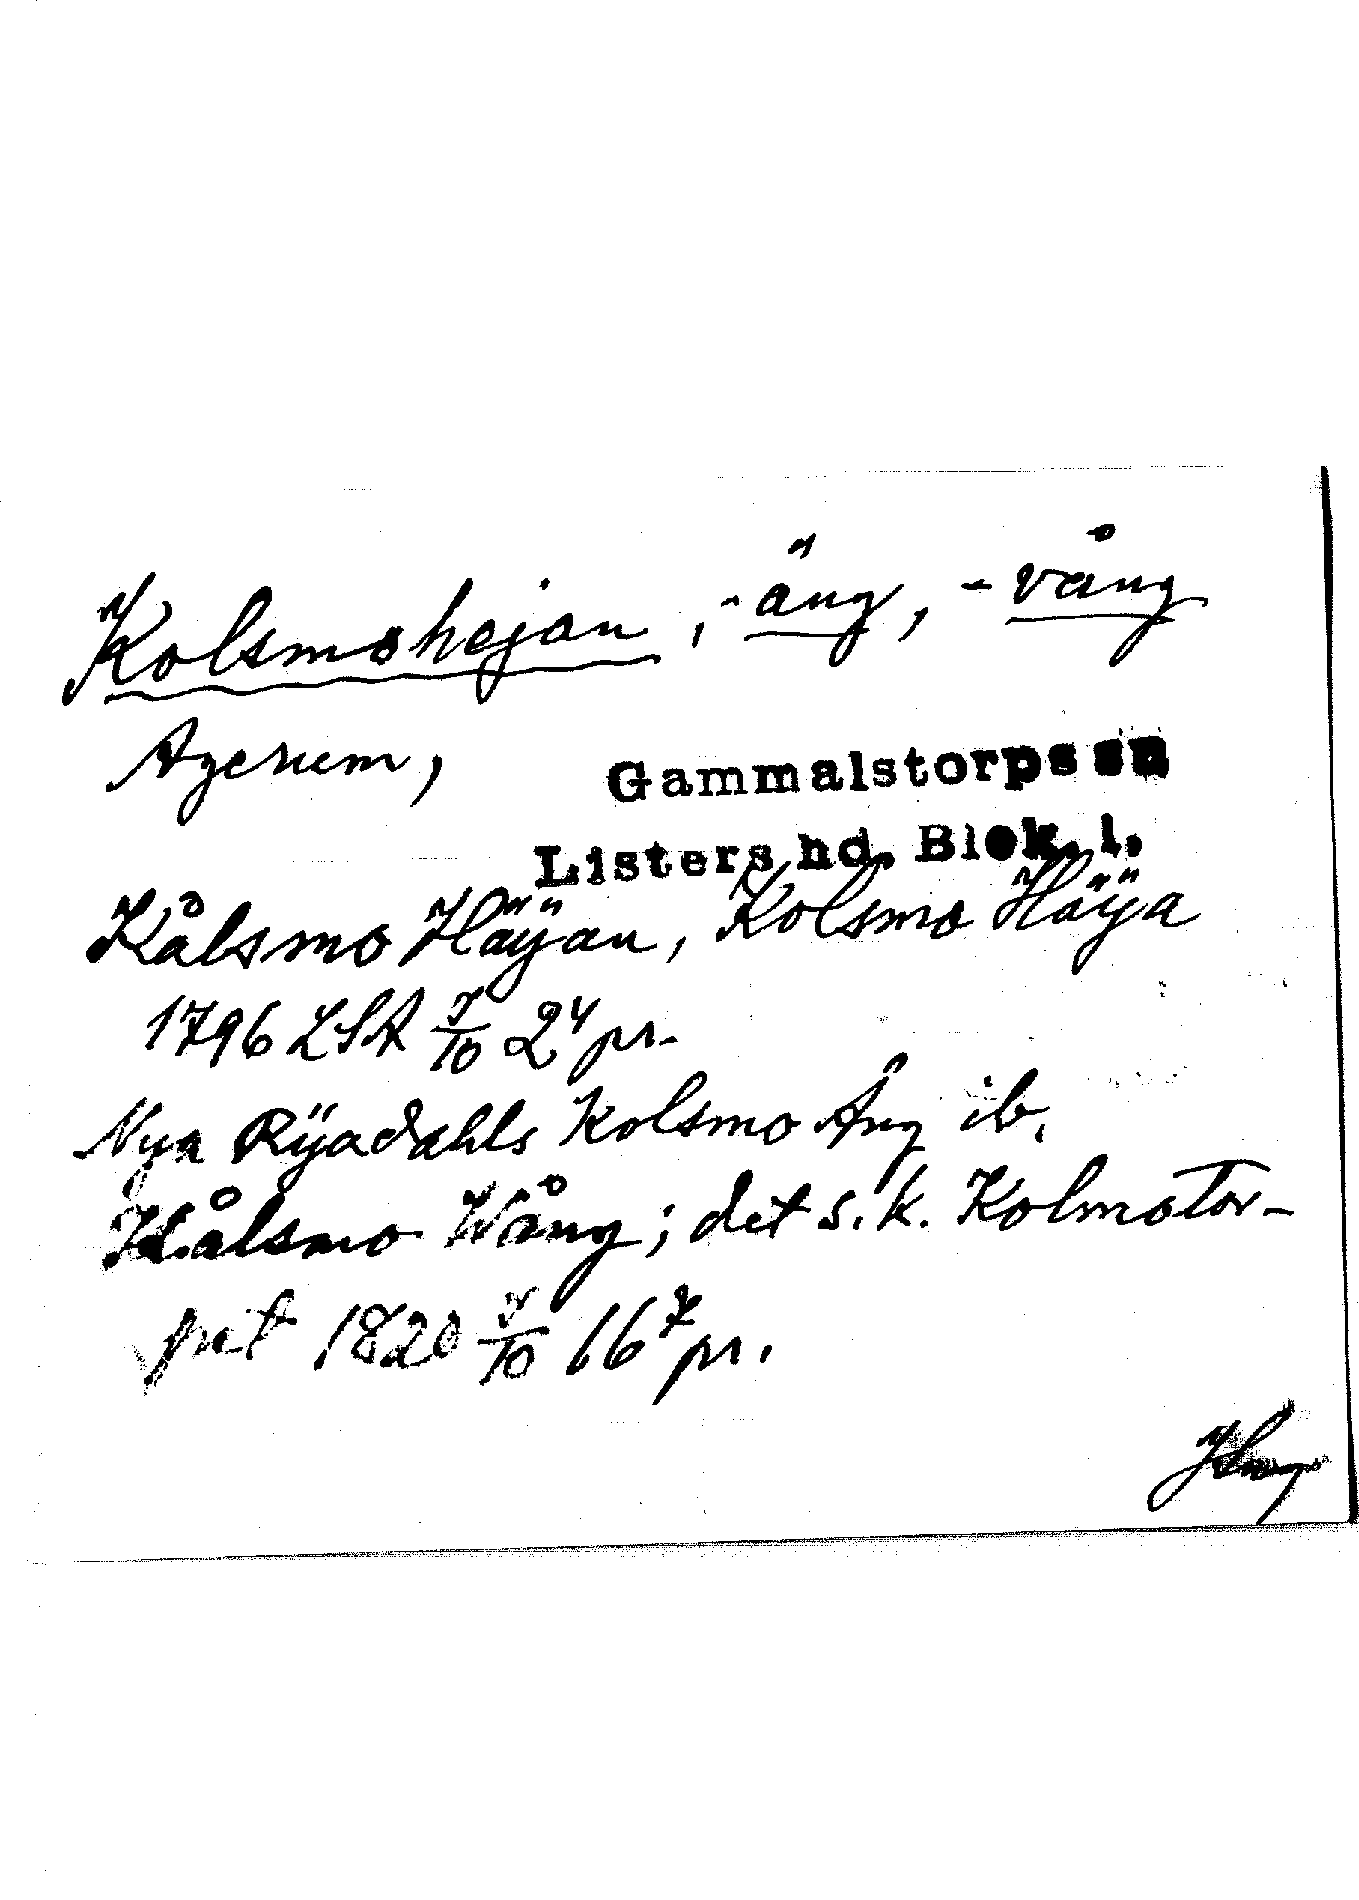 Kolsmohejan, -äng, -vång
Agerum,
Gammalstorps sn
Listers hd. Blek. l.
Kålsmo Häÿan, Kolsmo Häÿa
1796 LSA J/10 2⁴ pr.
Nya Rÿadahls Kolsmo Äng ib.
Kålsmo Wång; det s.k. Kolmotor-
pet 1820 J/10 16⁷ pr.